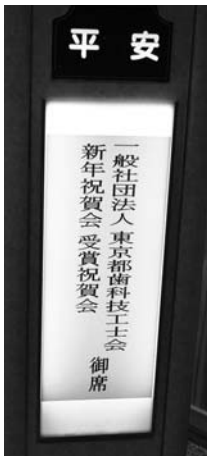 平安
一般社団法人 東京都歯科技工士会
新年祝賀会 受賞祝賀会
御席